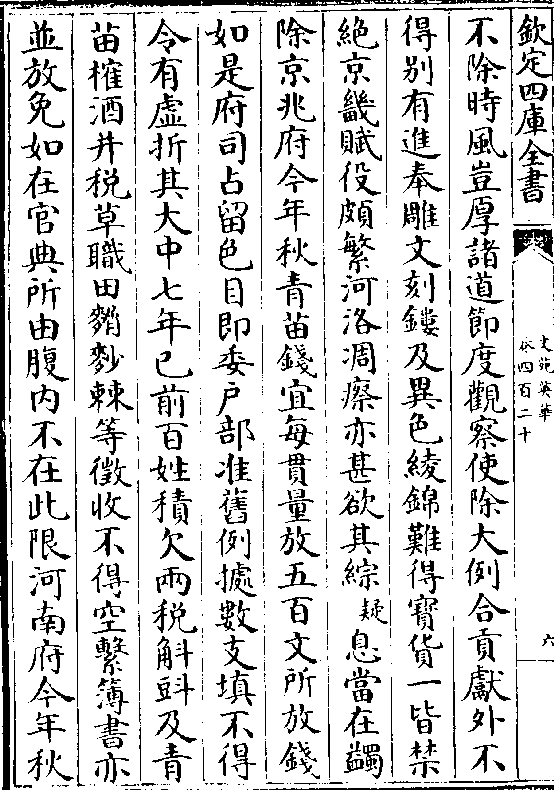 欽定四庫全書
文苑英華
卷四百二十
六
不除時風豈厚諸道節度觀察使除大例合貢獻外不
得別有進奉雕文刻鏤及異色綾錦難得寶貨一皆禁
絶京畿賦役頗繁河洛凋瘵亦甚欲其綜疑息當在蠲
除京兆府今年秋青苗錢宜每貫量放五百文所放錢
如是府司占留色目即委戸部准舊例據數支填不得
令有虛折其大中七年已前百姓積欠兩税斛㪷及青
苗榷酒并税草職田䅌麨𣗥等徵收不得空繫簿書亦
並放免如在官典所由腹内不在此限河南府今年秋